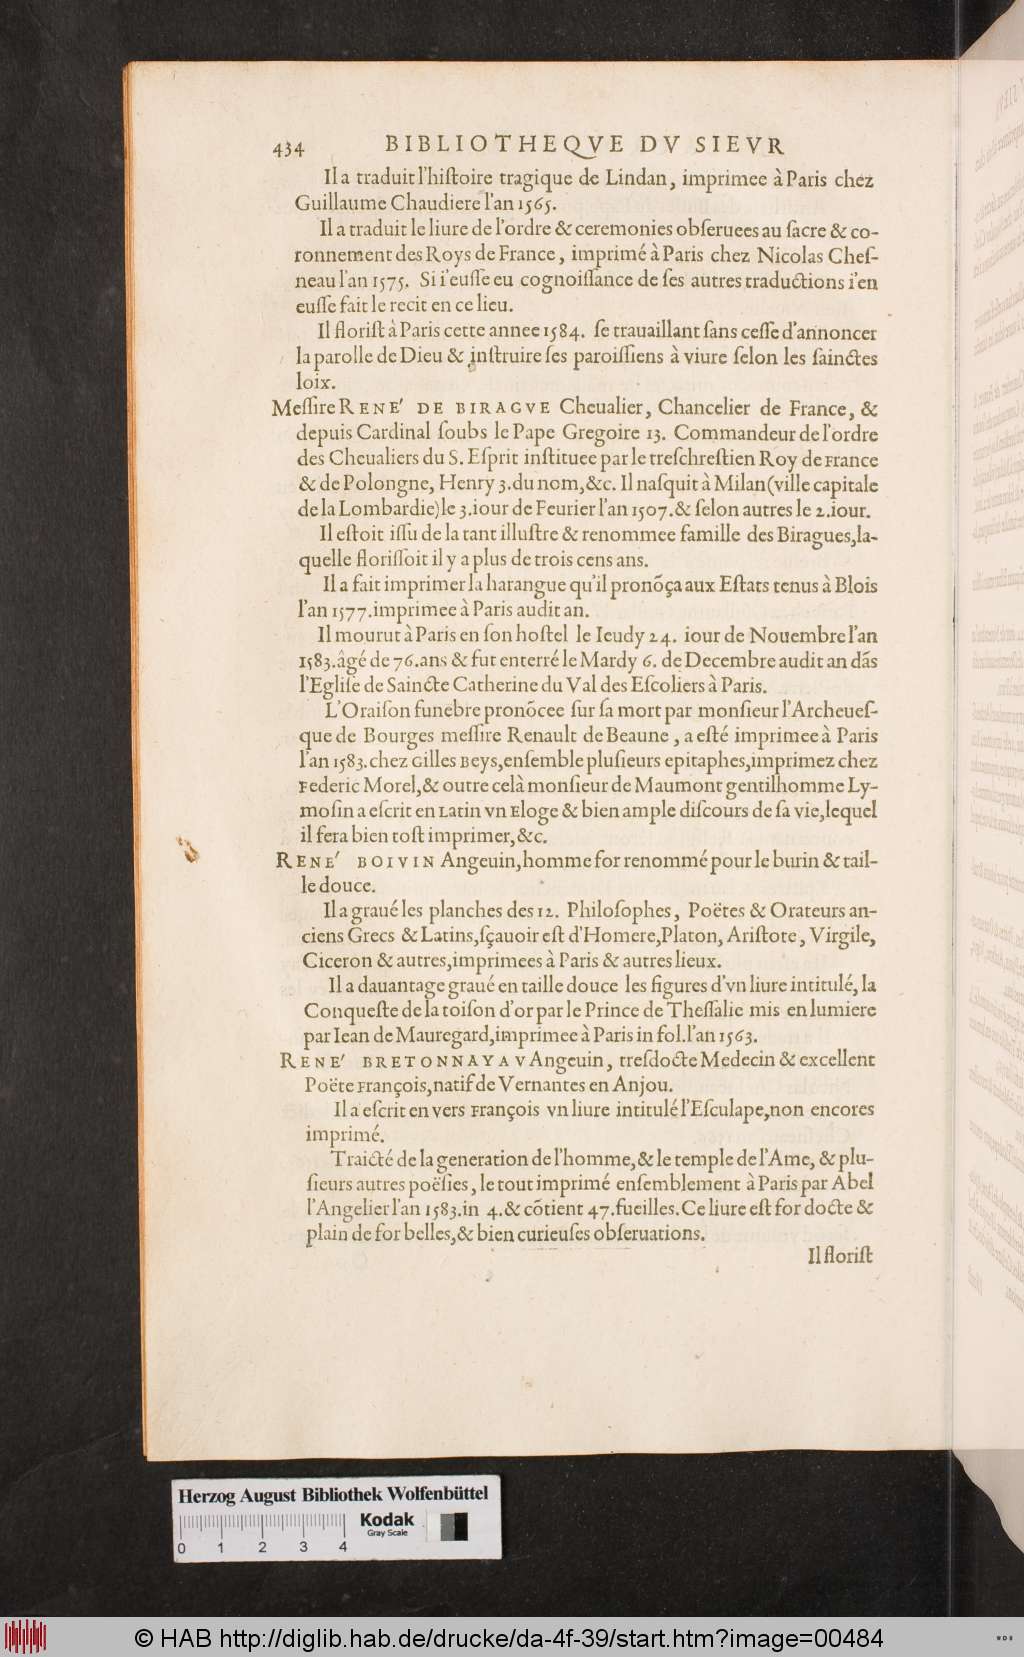 434 BIBLIOTHEQVE DV SIEVR
Il a traduit l'hiſtoire tragique de Lindan, imprimee à Paris chez
Guillaume Chaudiere l'an 1565.
Il a traduit le liure de l'ordre & ceremonies obſeruees au ſacre & co-
ronnement des Roys de France, imprimé à Paris chez Nicolas Cheſ-
neau l'an 1575. Si i'euſſe eu cognoiſſance de ſes autres traductions i'en
euſſe fait le recit en ce lieu.
Il floriſt à Paris cette annee 1584. ſe trauaillant ſans ceſſe d'annoncer
la parolle de Dieu & inſtruire ſes paroiſſiens à viure ſelon les ſainctes
loix.
Meſſire RENE' DE BIRAGVE Cheualier, Chancelier de France, &
depuis Cardinal ſoubs le Pape Gregoire 13. Commandeur de l'ordre
des Cheualiers du S. Eſprit inſtituee par le treſchreſtien Roy de France
& de Polongne, Henry 3. du nom, &c. Il naſquit à Milan (ville capitale
de la Lombardie) le 3. iour de Feurier l'an 1507. & ſelon autres le 2. iour.
Il eſtoit iſſu de la tant illuſtre & renommee famille des Biragues, la-
quelle floriſſoit il y a plus de trois cens ans.
Il a fait imprimer la harangue qu'il pronõça aux Eſtats tenus à Blois
l'an 1577. imprimee à Paris audit an.
Il mourut à Paris en ſon hoſtel le Ieudy 24. iour de Nouembre l'an
1583. âgé de 76. ans & fut enterré le Mardy 6. de Decembre audit an dãs
l'Egliſe de Saincte Catherine du Val des Eſcoliers à Paris.
L'Oraiſon funebre pronõcee ſur ſa mort par monſieur l'Archeueſ-
que de Bourges meſſire Renault de Beaune, a eſté imprimee à Paris
l'an 1583. chez Gilles Beys, enſemble pluſieurs epitaphes, imprimez chez
Federic Morel, & outre celà monſieur de Maumont gentilhomme Ly-
moſin a eſcrit en Latin vn Eloge & bien ample diſcours de ſa vie, lequel
il fera bien toſt imprimer, &c.
RENE' BOIVIN Angeuin, homme for renommé pour le burin & tail-
le douce.
Il a graué les planches des 12. Philoſophes, Poëtes & Orateurs an-
ciens Grecs & Latins, ſçauoir eſt d'Homere, Platon, Ariſtote, Virgile,
Ciceron & autres, imprimees à Paris & autres lieux.
Il a dauantage graué en taille douce les figures d'vn liure intitulé, la
Conqueſte de la toiſon d'or par le Prince de Theſſalie mis en lumiere
par Iean de Mauregard, imprimee à Paris in fol. l'an 1563.
RENE' BRETONNAYAV Angeuin, treſdocte Medecin & excellent
Poëte François, natif de Vernantes en Anjou.
Il a eſcrit en vers François vn liure intitulé l'Eſculape, non encores
imprimé.
Traicté de la generation de l'homme, & le temple de l'Ame, & plu-
ſieurs autres poëſies, le tout imprimé enſemblement à Paris par Abel
l'Angelier l'an 1583. in 4. & cõtient 47. fueilles. Ce liure eſt for docte &
plain de for belles, & bien curieuſes obſeruations.
Il floriſt
Herzog August Bibliothek Wolfenbüttel
Kodak
Gray Scale
0 1 2 3 4
© HAB http://diglib.hab.de/drucke/da-4f-39/start.htm?image=00484